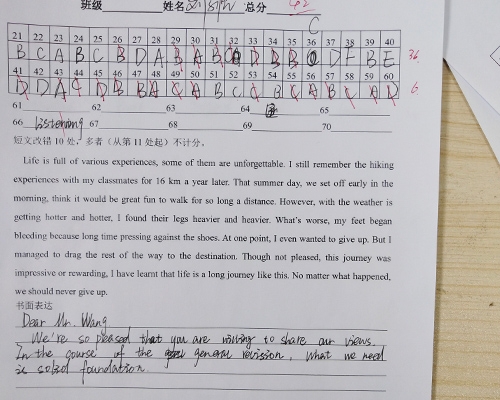 班级 姓名 总分 42
C
21 22 23 24 25 26 27 28 29 30 31 32 33 34 35 36 37 38 39 40
B C A B C B D A B A B C D B B D F B E 36
41 42 43 44 45 46 47 48 49 50 51 52 53 54 55 56 57 58 59 60
D D A C D B B A C A B C C B C A B C A D 6
61 62 63 64 65
66 listening 67 68 69 70
短文改错 10 处，多者（从第 11 处起）不计分。
Life is full of various experiences, some of them are unforgettable. I still remember the hiking
experiences with my classmates for 16 km a year later. That summer day, we set off early in the
morning, think it would be great fun to walk for so long a distance. However, with the weather is
getting hotter and hotter, I found their legs heavier and heavier. What's worse, my feet began
bleeding because long time pressing against the shoes. At one point, I even wanted to give up. But I
managed to drag the rest of the way to the destination. Though not pleased, this journey was
impressive or rewarding, I have learnt that life is a long journey like this. No matter what happened,
we should never give up.
书面表达
Dear Mr. Wang
We're so pleased that you are willing to share our views.
In the course of the general revision, what we need
is solid foundation.